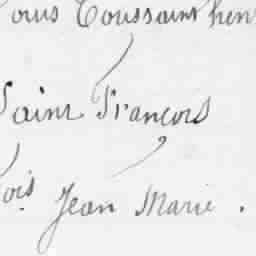 ous Toussaint hen
Saint François
ois Jean Marie .